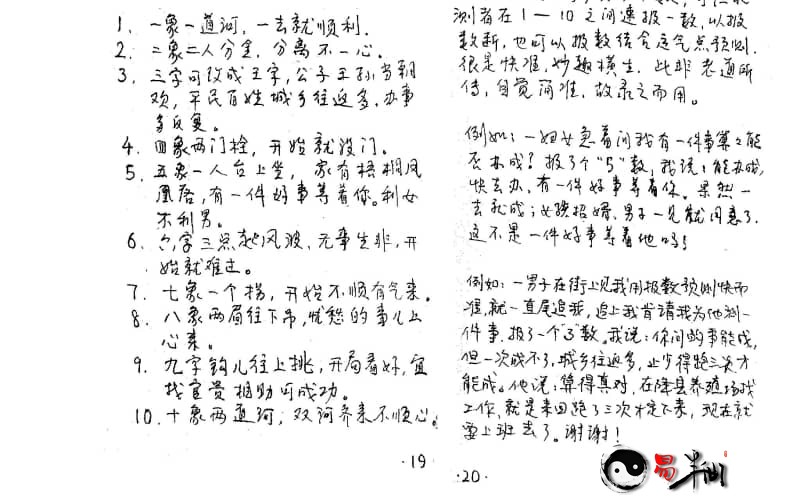 1、一象一道河，一去就顺利.
2、二象二人分金，分离不一心.
3、三字可改成王字，公子王孙当朝
欢，平民百姓城乡往返多.办事
多反复。
4、四象两门栓，开始就没门.
5、五象一人台上坐，家有梧桐凤
凰落，有一件好事等着你。利女
不利男。
6、六字三点起风波、无事生非，开
始就难过。
7、七象一个拐，开始不顺有气来。
8、八象两眉往下吊，忧愁的事儿上
心来.
9、九字钩儿往上挑，开局看好，宜
找官贵相助可成功。
10、十象两道河；双河齐来不顺心。
·19
测者在1—10之间速报一数，以报
数断，也可以报数结合庭气点预测.
很是快准，妙趣横生，此非老道所
传，自觉简准，故录之而用。
例如：一妇女急着问我有一件事算算能
否办成？报了个"5"数，我说：能办成，
快去办，有一件好事等着你。果然一
去就成；女孩招婿、男子一见就同意了.
这不是一件好事等着他吗！
例如：一男子在街上见我用报数预测快而
准，就一直尾追我，追上我肯请我为他测一
件事.报了一个"3"数。我说：你问的事能成，
但一次成不了，城乡往返多，止少得跑三次才
能成。他说：算得真对，在降县养殖场找
工作，就是来回跑了三次才定下来，现在就
要上班去了。谢谢！
·20·
易半仙